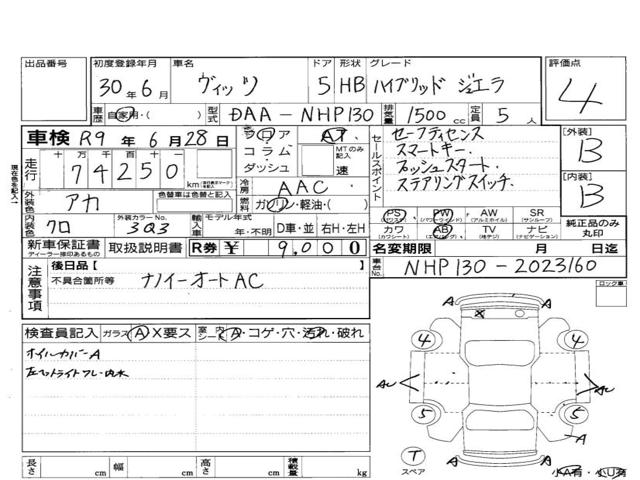 出品番号 初度登録年月 車名 ドア 形状 グレード 評価点
30年6月 ヴィッツ 5 HB ハイブリッド ジュエラ 4
車歴 自家用・( ) 型式 DAA-NHP130 排気量 1500 cc 定員 5 人
車検 R9 年 6 月 28 日
フロア AT
コラム MTのみ記入
ダッシュ 速
走行 十万 万 千 百 十 一
74250 km
冷房 AAC
燃料 ガソリン・軽油・( )
セールスポイント
セーフティセンス
スマートキー.
プッシュスタート.
ステアリングスイッチ.
[外装] B
[内装] B
現在色を記入
外装色 アカ 色替車は色替と記入
内装色 クロ 外装カラーNo. 3Q3
輸入車 モデル年式 年・不明 D車・並 右H・左H
PS PW AW SR
カワ AB TV ナビ
純正品のみ丸印
新車保証書 取扱説明書 R券 ¥ 9,000
ディーラー捺印あるもの
名変期限 月 日迄
車台No. NHP130-2023160
注意事項
後日品【
不具合箇所等 ナノイーオートAC
ロック車
検査員記入 ガラス A X要ス 室内 シート A・コゲ・穴・汚れ・破れ
オイルカバーA
4 X 4
A
5 5
A
T スペア
A A
長さ cm 幅 cm 高さ cm 積載量 kg
小A有・小U有